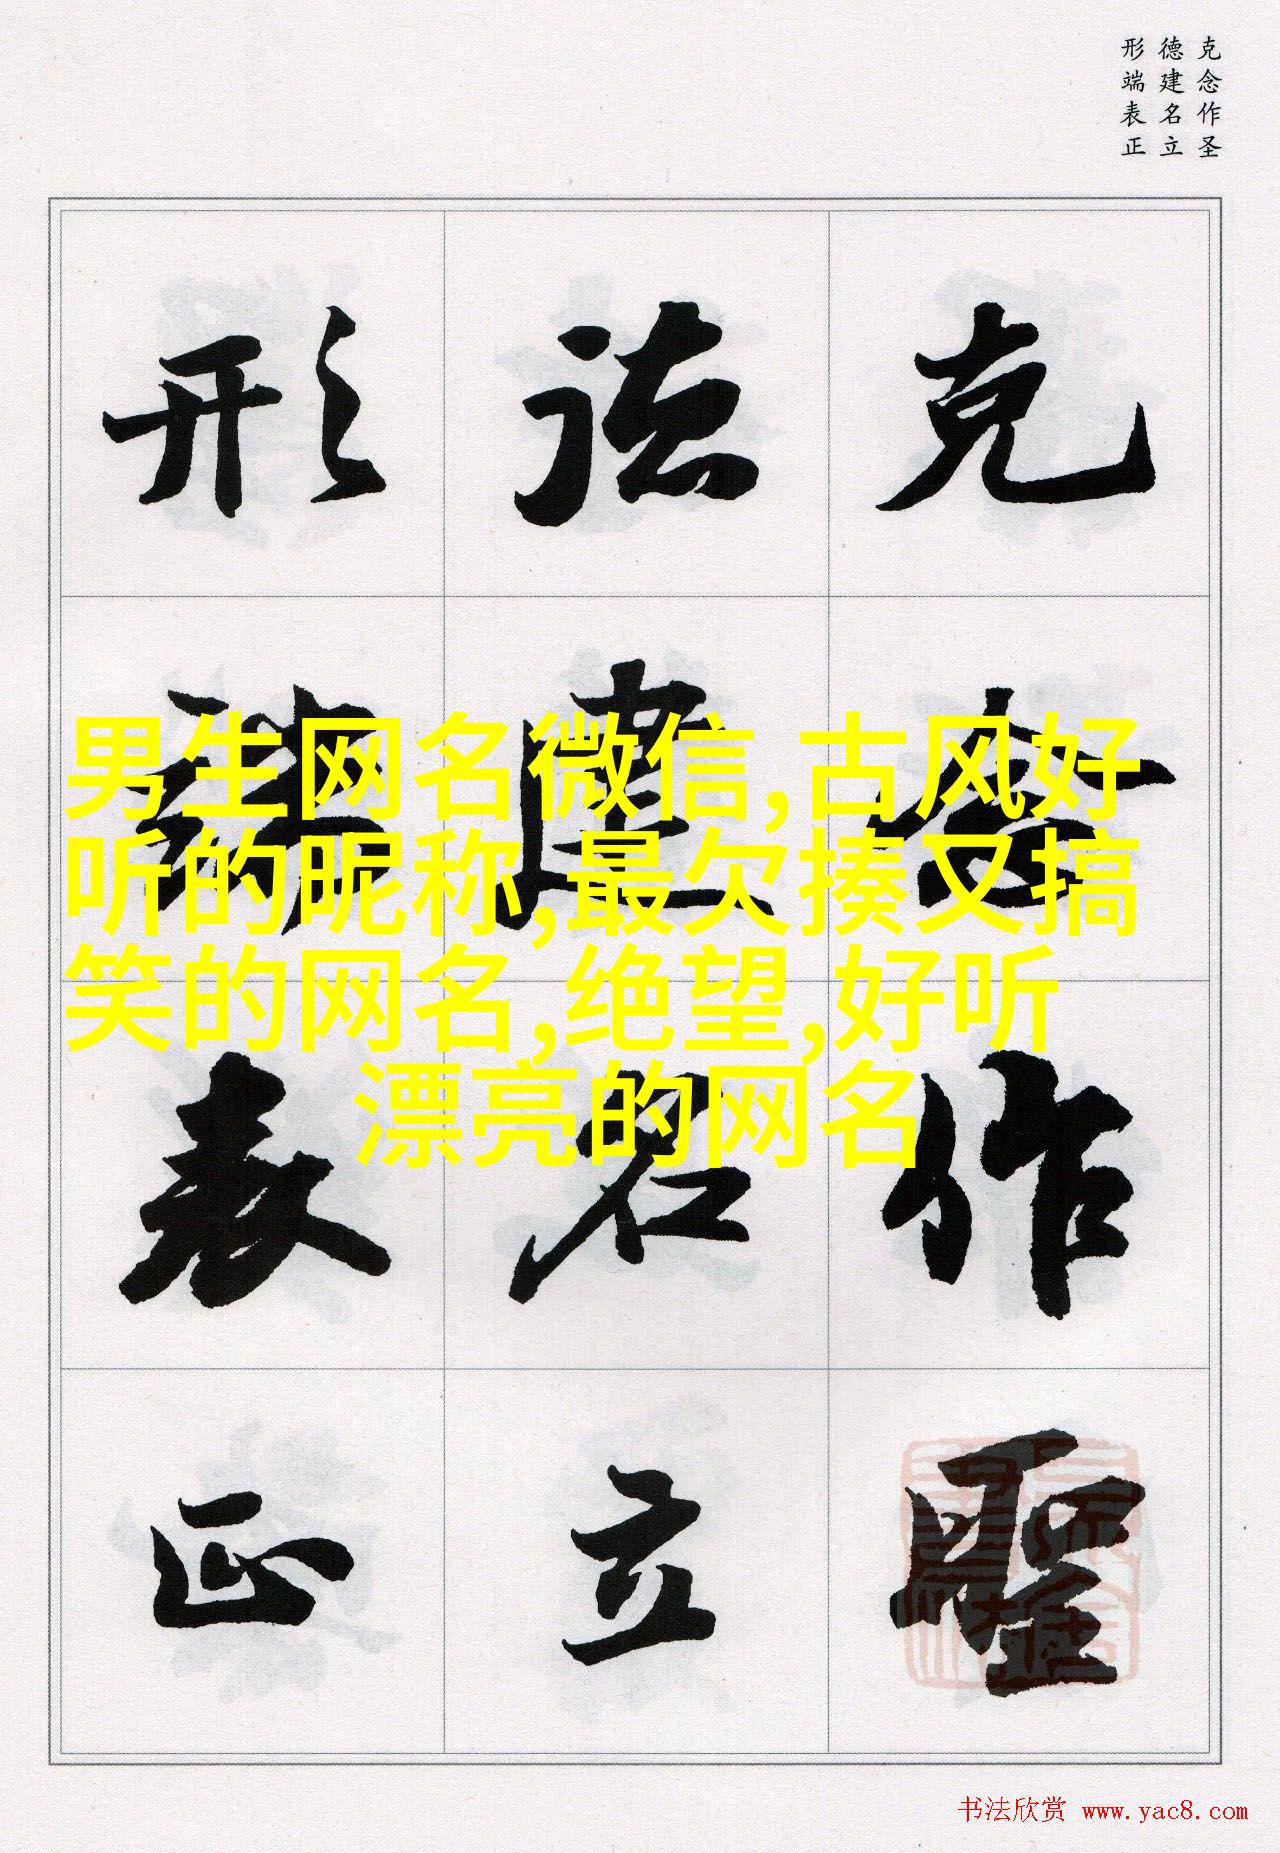 克念作圣
德建名立
形端表正
克念作聖
德建名立
形端表正
男生网名微信,古风好
听的昵称,最欠揍又搞
笑的网名,绝望,好听
漂亮的网名
书法欣赏 www.yac8.com